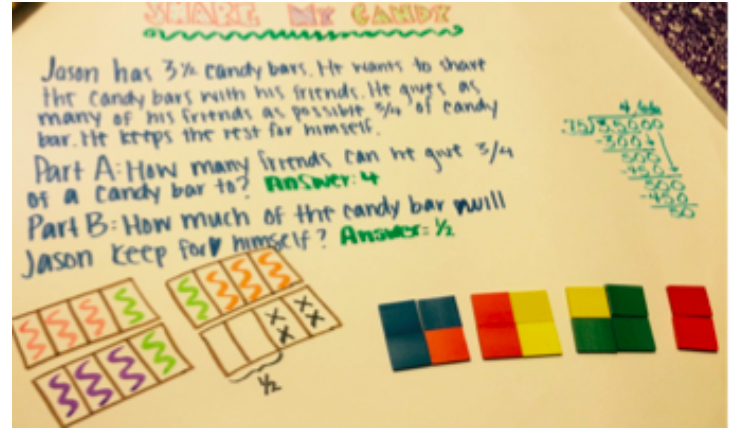 SHARE MY CANDY
Jason has 3 ½ candy bars. He wants to share
the candy bars with his friends. He gives as
many of his friends as possible 3/4 of candy
bar. He keeps the rest for himself.
Part A: How many friends can he give 3/4
of a candy bar to? Answer: 4
Part B: How much of the candy bar will
Jason keep for himself? Answer: ½
4.66
.75)35000
-300
500
-450
500
-450
50
½